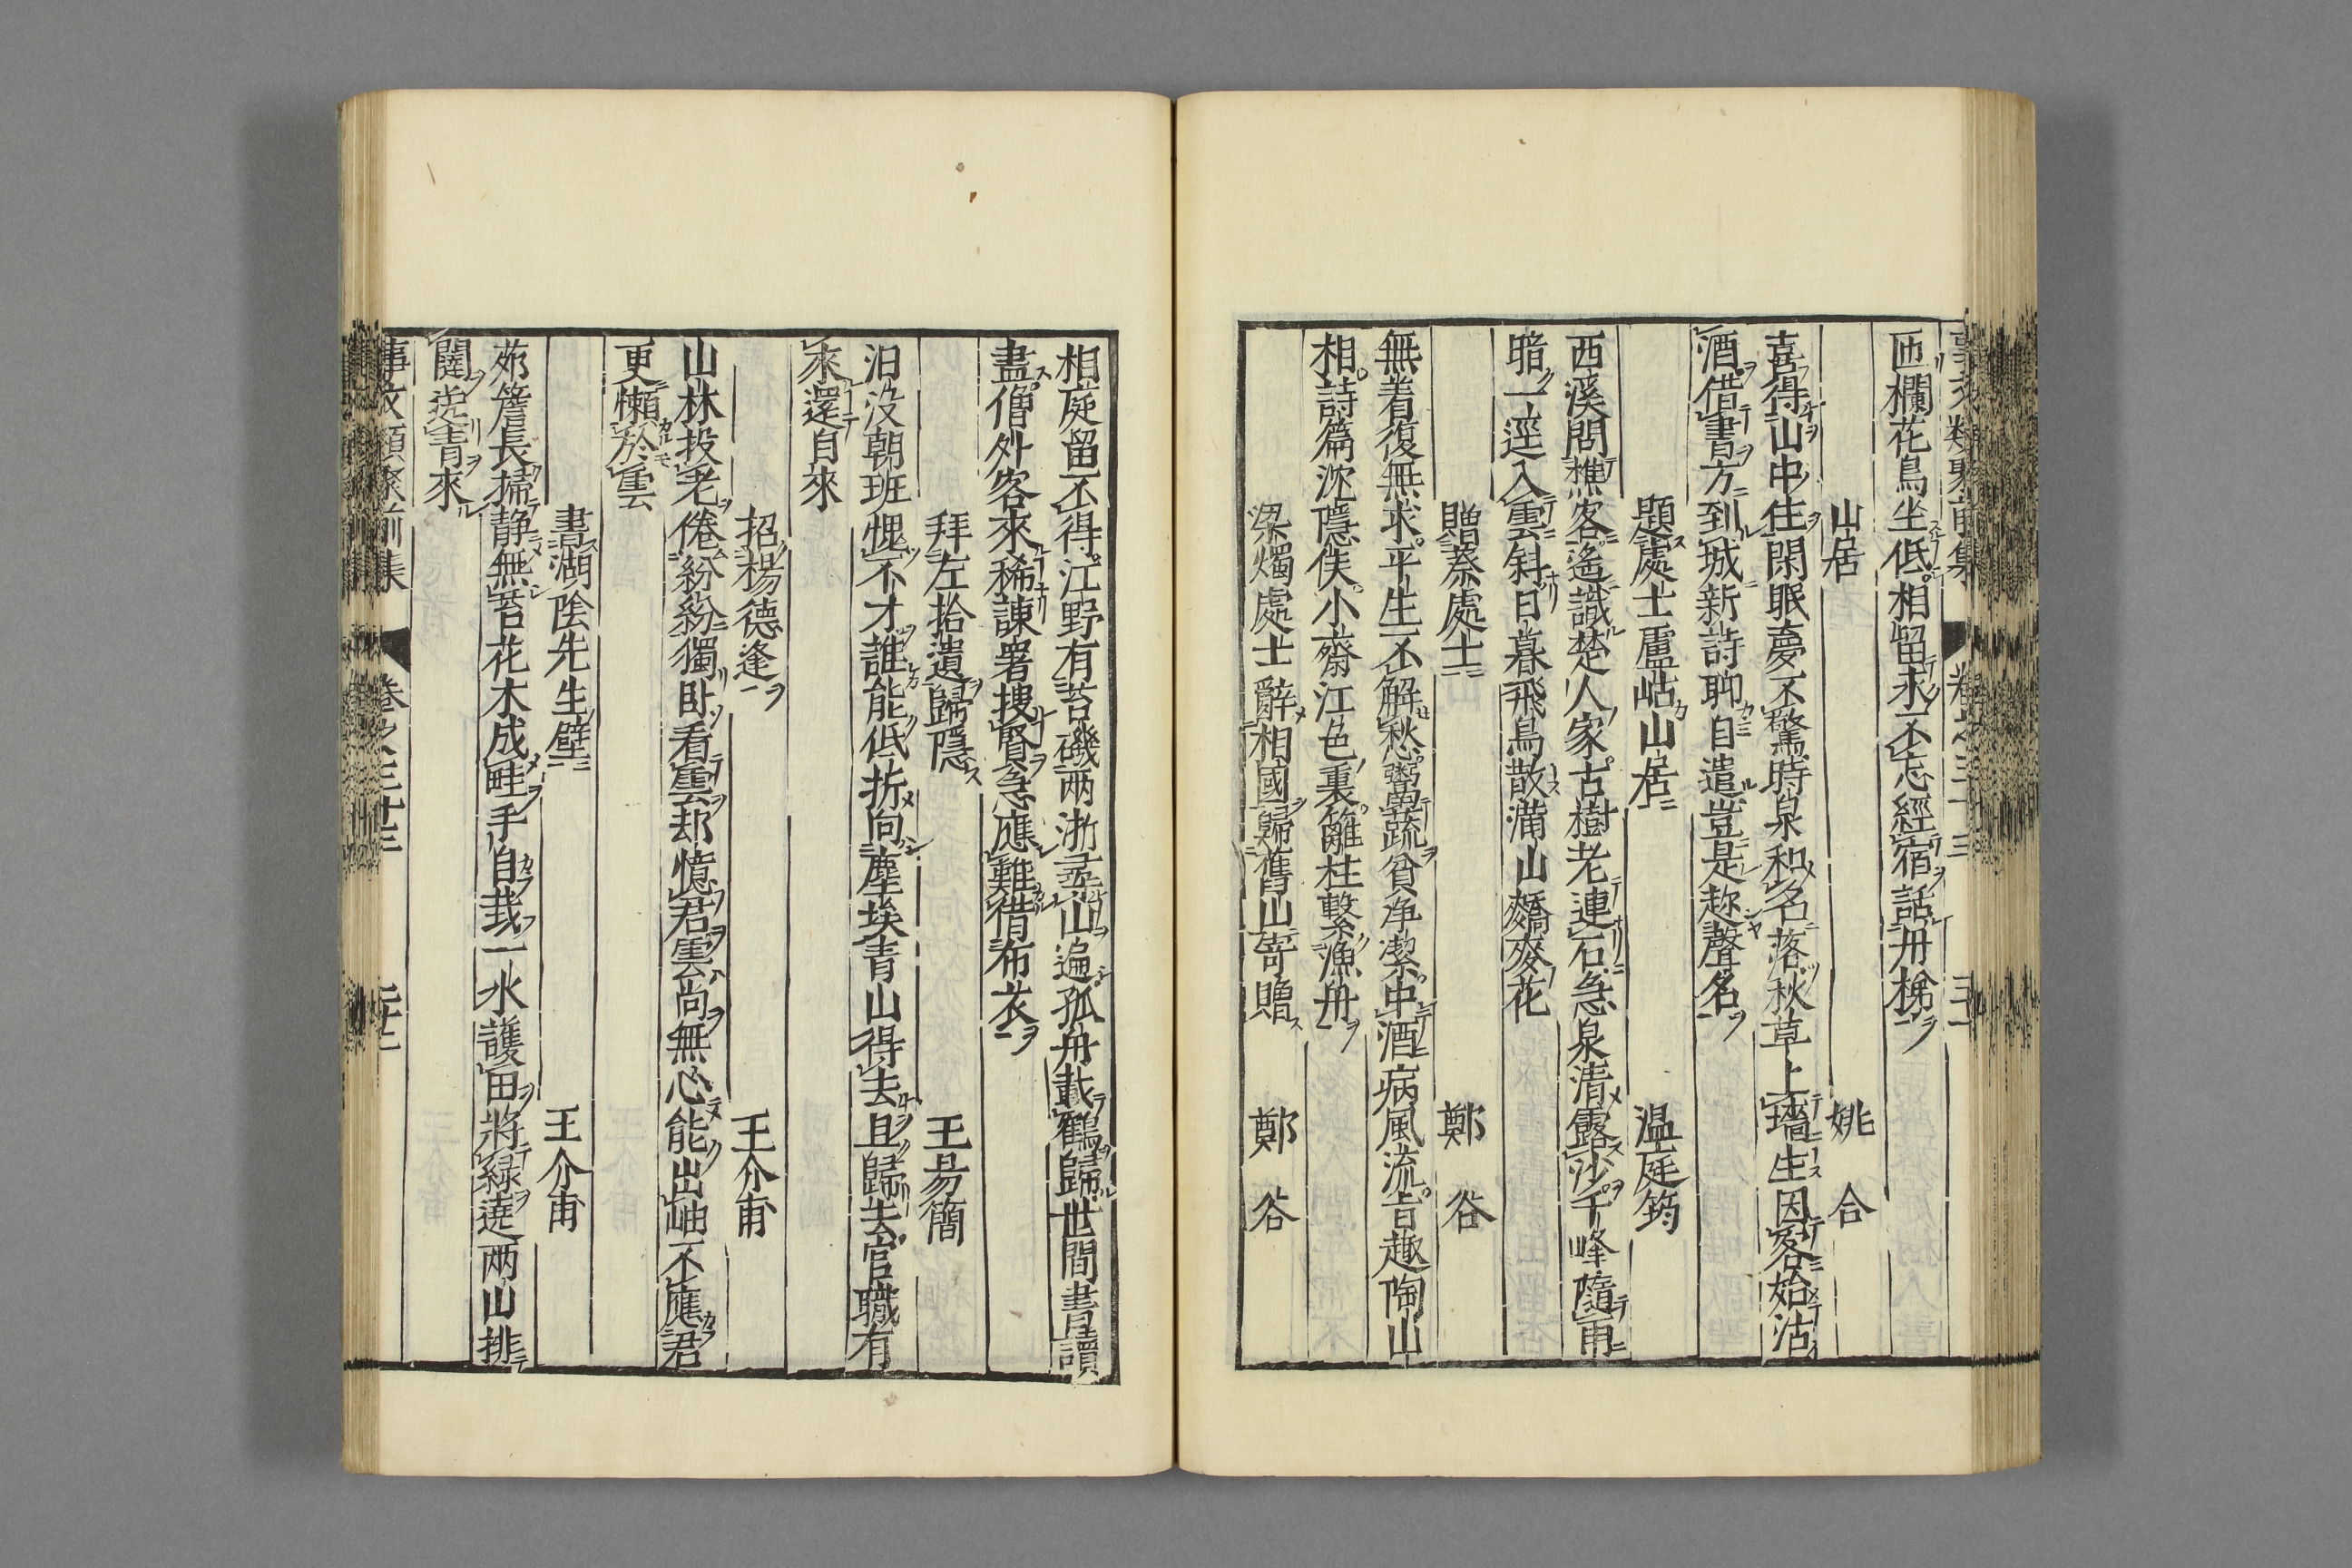 事文類聚前集 卷之三十三
匝欄花鳥坐低相留永不忘經宿話丹梯
山居 姚合
喜得山中住閑眠夢不驚時泉和名落秋草上墻生因客始沽
酒借書方到城新詩聊自遣豈是趂聲名
題處士盧岵山居 温庭筠
西溪問樵客遙識楚人家古樹老連石急泉清露沙千峰隨雨
暗一逕入雲斜日暮飛鳥散滿山蕎麥花
贈蔡處士 鄭谷
無着復無求平生不解愁鬻蔬貧净潔中酒病風流旨趣陶山
相詩篇沈隱侯小齋江色裏籬柱繫漁舟
梁燭處士辭相國歸舊山寄贈 鄭谷
相庭留不得江野有苔磯兩浙尋山遍孤舟載鶴歸世間書讀
盡僧外客來稀諌署搜賢急應難借布衣
拜左拾遺歸隱 王昜簡
汨没朝班愧不才誰能低折向塵埃青山得去且歸去官職有
來還自來
招楊德逢 王介甫
山林投老倦紛紛獨卧看雲却憶君雲尚無心能出岫不應君
更懶於雲
書湖陰先生壁 王介甫
茆簷長掃静無苔花木成畦手自栽一水護田將緑遶兩山排
闥送青來
事文類聚前集 卷之三十三